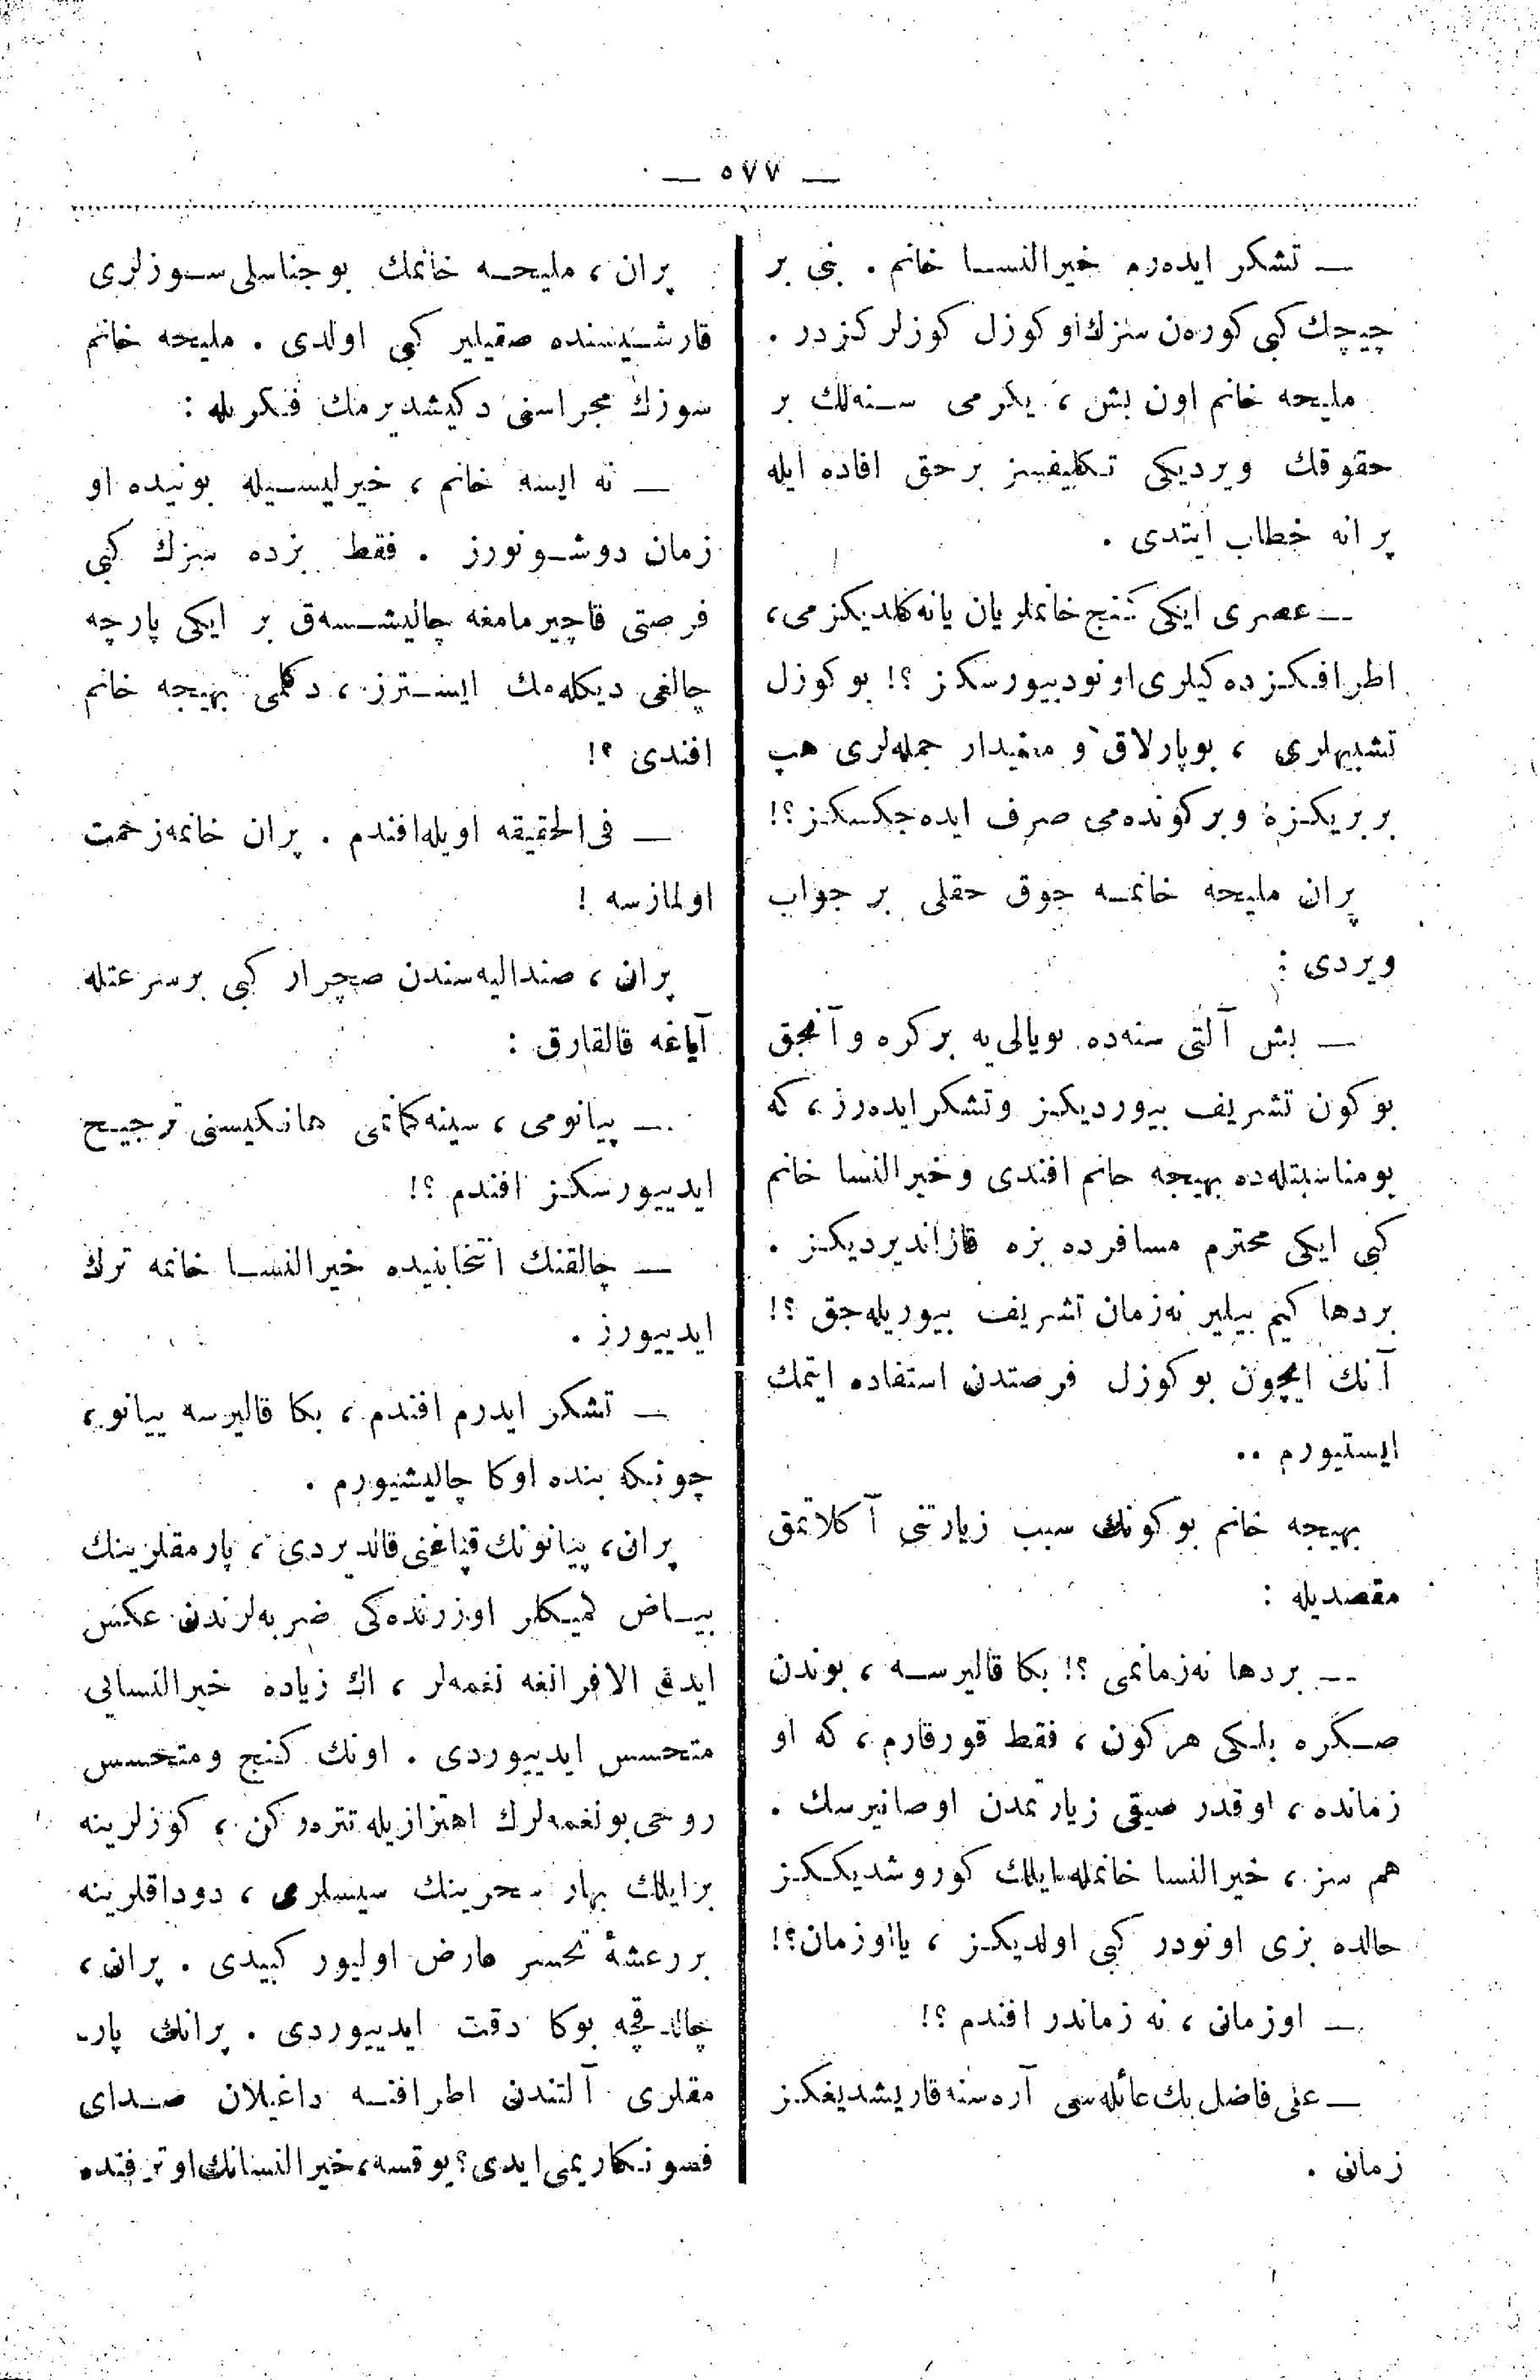 — ٥٧٧ —
— تشكر ايده‌رم خيرالنسا خانم . بنی بر
چيچك كبی كوره‌ن سزك او كوزل كوزلركزدر .
مليحه خانم اون بش ، يكرمی سنه‌لك بر
حقوقك ويرديكی تكليفسز بر حق افاده ايله
پرانه خطاب ايتدی .
— عصری ايكی كنج خانملر يان يانه كلديكزمی ،
اطرافكزده‌كيلری اونودييورسكز ؟! بو كوزل
تشبيهلری ، بو پارلاق و مفيدار جمله‌لری هپ
بربريكزه و بر كونده‌می صرف ايده‌جكسكز ؟!
پران مليحه خانمه چوق حقلی بر جواب
ويردی :
— بش آلتی سنه‌ده بو يالی‌يه بر كره و آنجق
بو كون تشريف بيورديكز و تشكر ايده‌رز ، كه
بو مناسبتله‌ده بهيجه خانم افندی و خيرالنسا خانم
كبی ايكی محترم مسافرده بزه قازانديرديكز .
بر دها كيم بيلير نه‌زمان تشريف بيوريله‌جق ؟!
آنك ايچون بو كوزل فرصتدن استفاده ايتمك
ايستيورم ..
بهيجه خانم بو كونك سبب زيارتنی آكلاتمق
مقصديله :
— بر دها نه‌زمانمی ؟! بكا قاليرسه ، بوندن
صكره بلكی هر كون ، فقط قورقارم ، كه او
زمانده ، او قدر صيقی زيارتمدن اوصانيرسك .
هم سز ، خيرالنسا خانمله ايلك كوروشديككز
حالده بزی اونودر كبی اولديكز ، يا او زمان ؟!
— او زمانی ، نه زماندر افندم ؟!
— علی فاضل بك عائله‌سی آره‌سنه قاريشديغكز
زمانی .
پران ، مليحه خانمك بو جناسلی سوزلری
قارشيسنده صقيلير كبی اولدی . مليحه خانم
سوزك مجراسنی دكيشديرمك فكريله :
— نه ايسه خانم ، خيرليسيله بونيده او
زمان دوشونورز . فقط بزده سزك كبی
فرصتی قاچيرمامغه چاليشسه‌ق بر ايكی پارچه
چالغی ديكله‌مك ايسترز ، دكلمی بهيجه خانم
افندی ؟!
— فی الحقيقه اويله افندم . پران خانمه زحمت
اولمازسه !
پران ، صنداليه‌سندن صچرار كبی بر سرعتله
آياغه قالقارق :
— پيانومی ، سينه‌كمانمی هانكيسنی ترجيح
ايدييورسكز افندم ؟!
— چالقنك انتخابنيده خيرالنسا خانمه ترك
ايدييورز .
— تشكر ايدرم افندم ، بكا قاليرسه پيانو ،
چونكه بنده اوكا چاليشيورم .
پران ، پيانونك قپاغنی قالديردی ، پارمقلرينك
بياض كميكلر اوزرنده‌كی ضربه‌لرندن عكس
ايدن الافرانغه نغمه‌لر ، اك زياده خيرالنسايی
متحسس ايدييوردی . اونك كنج و متحسس
روحی بو نغمه‌لرك اهتزازيله تتره‌ركن ، كوزلرينه
بر ايلك بهار سحرينك سيسلری ، دوداقلرينه
بر رعشۀ تحسر عارض اوليور كبيدی . پران ،
چالدقچه بوكا دقت ايدييوردی . پرانك پار-
مقلری آلتندن اطرافنه داغيلان صدای
فسونكاريمی ايدی ؟ يوقسه ، خيرالنسانك او ترفنده